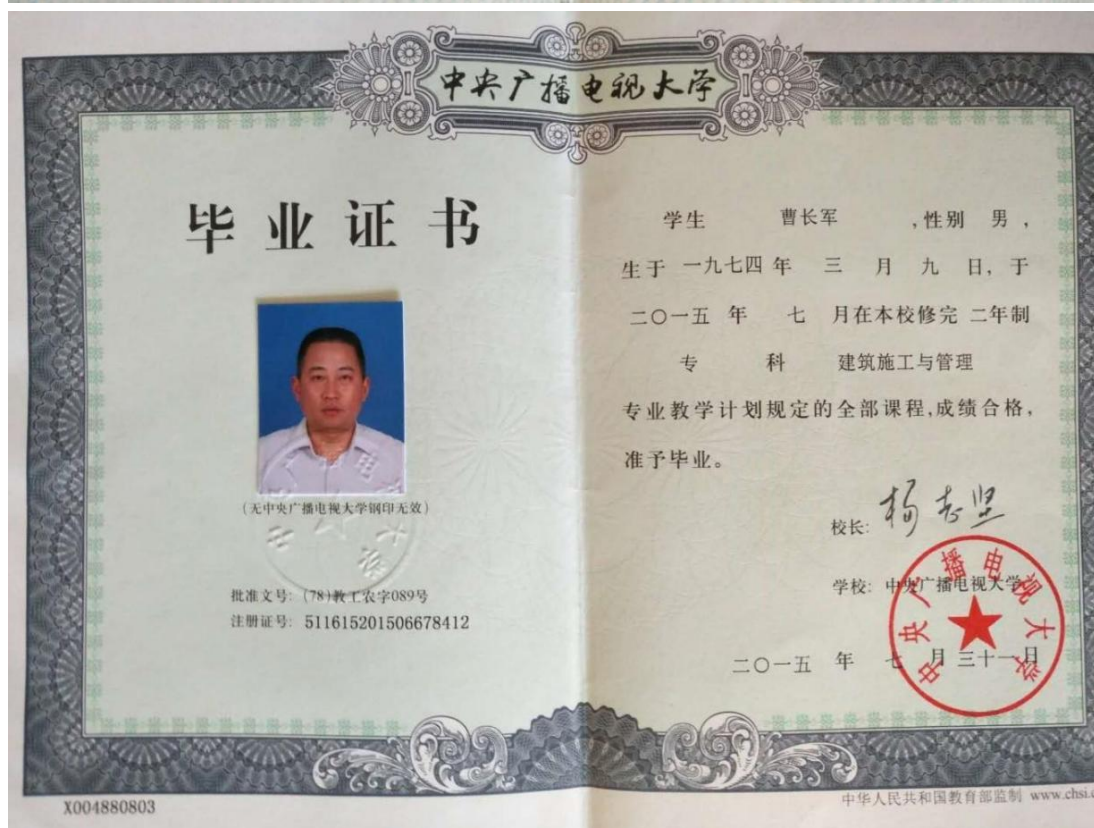 中央广播电视大学
毕业证书
(无中央广播电视大学钢印无效)
批准文号: (78)教工农字089号
注册证号: 511615201506678412
X004880803
学生 曹长军 ,性别 男 ,
生于 一九七四 年 三 月 九 日, 于
二〇一五 年 七 月在本校修完 二年制
专 科 建筑施工与管理
专业教学计划规定的全部课程,成绩合格,
准予毕业。
校长: 杨志坚
学校: 中央广播电视大学
中央广播电视大学
二〇一五 年 七 月 三十一日
中华人民共和国教育部监制 www.chsi.c